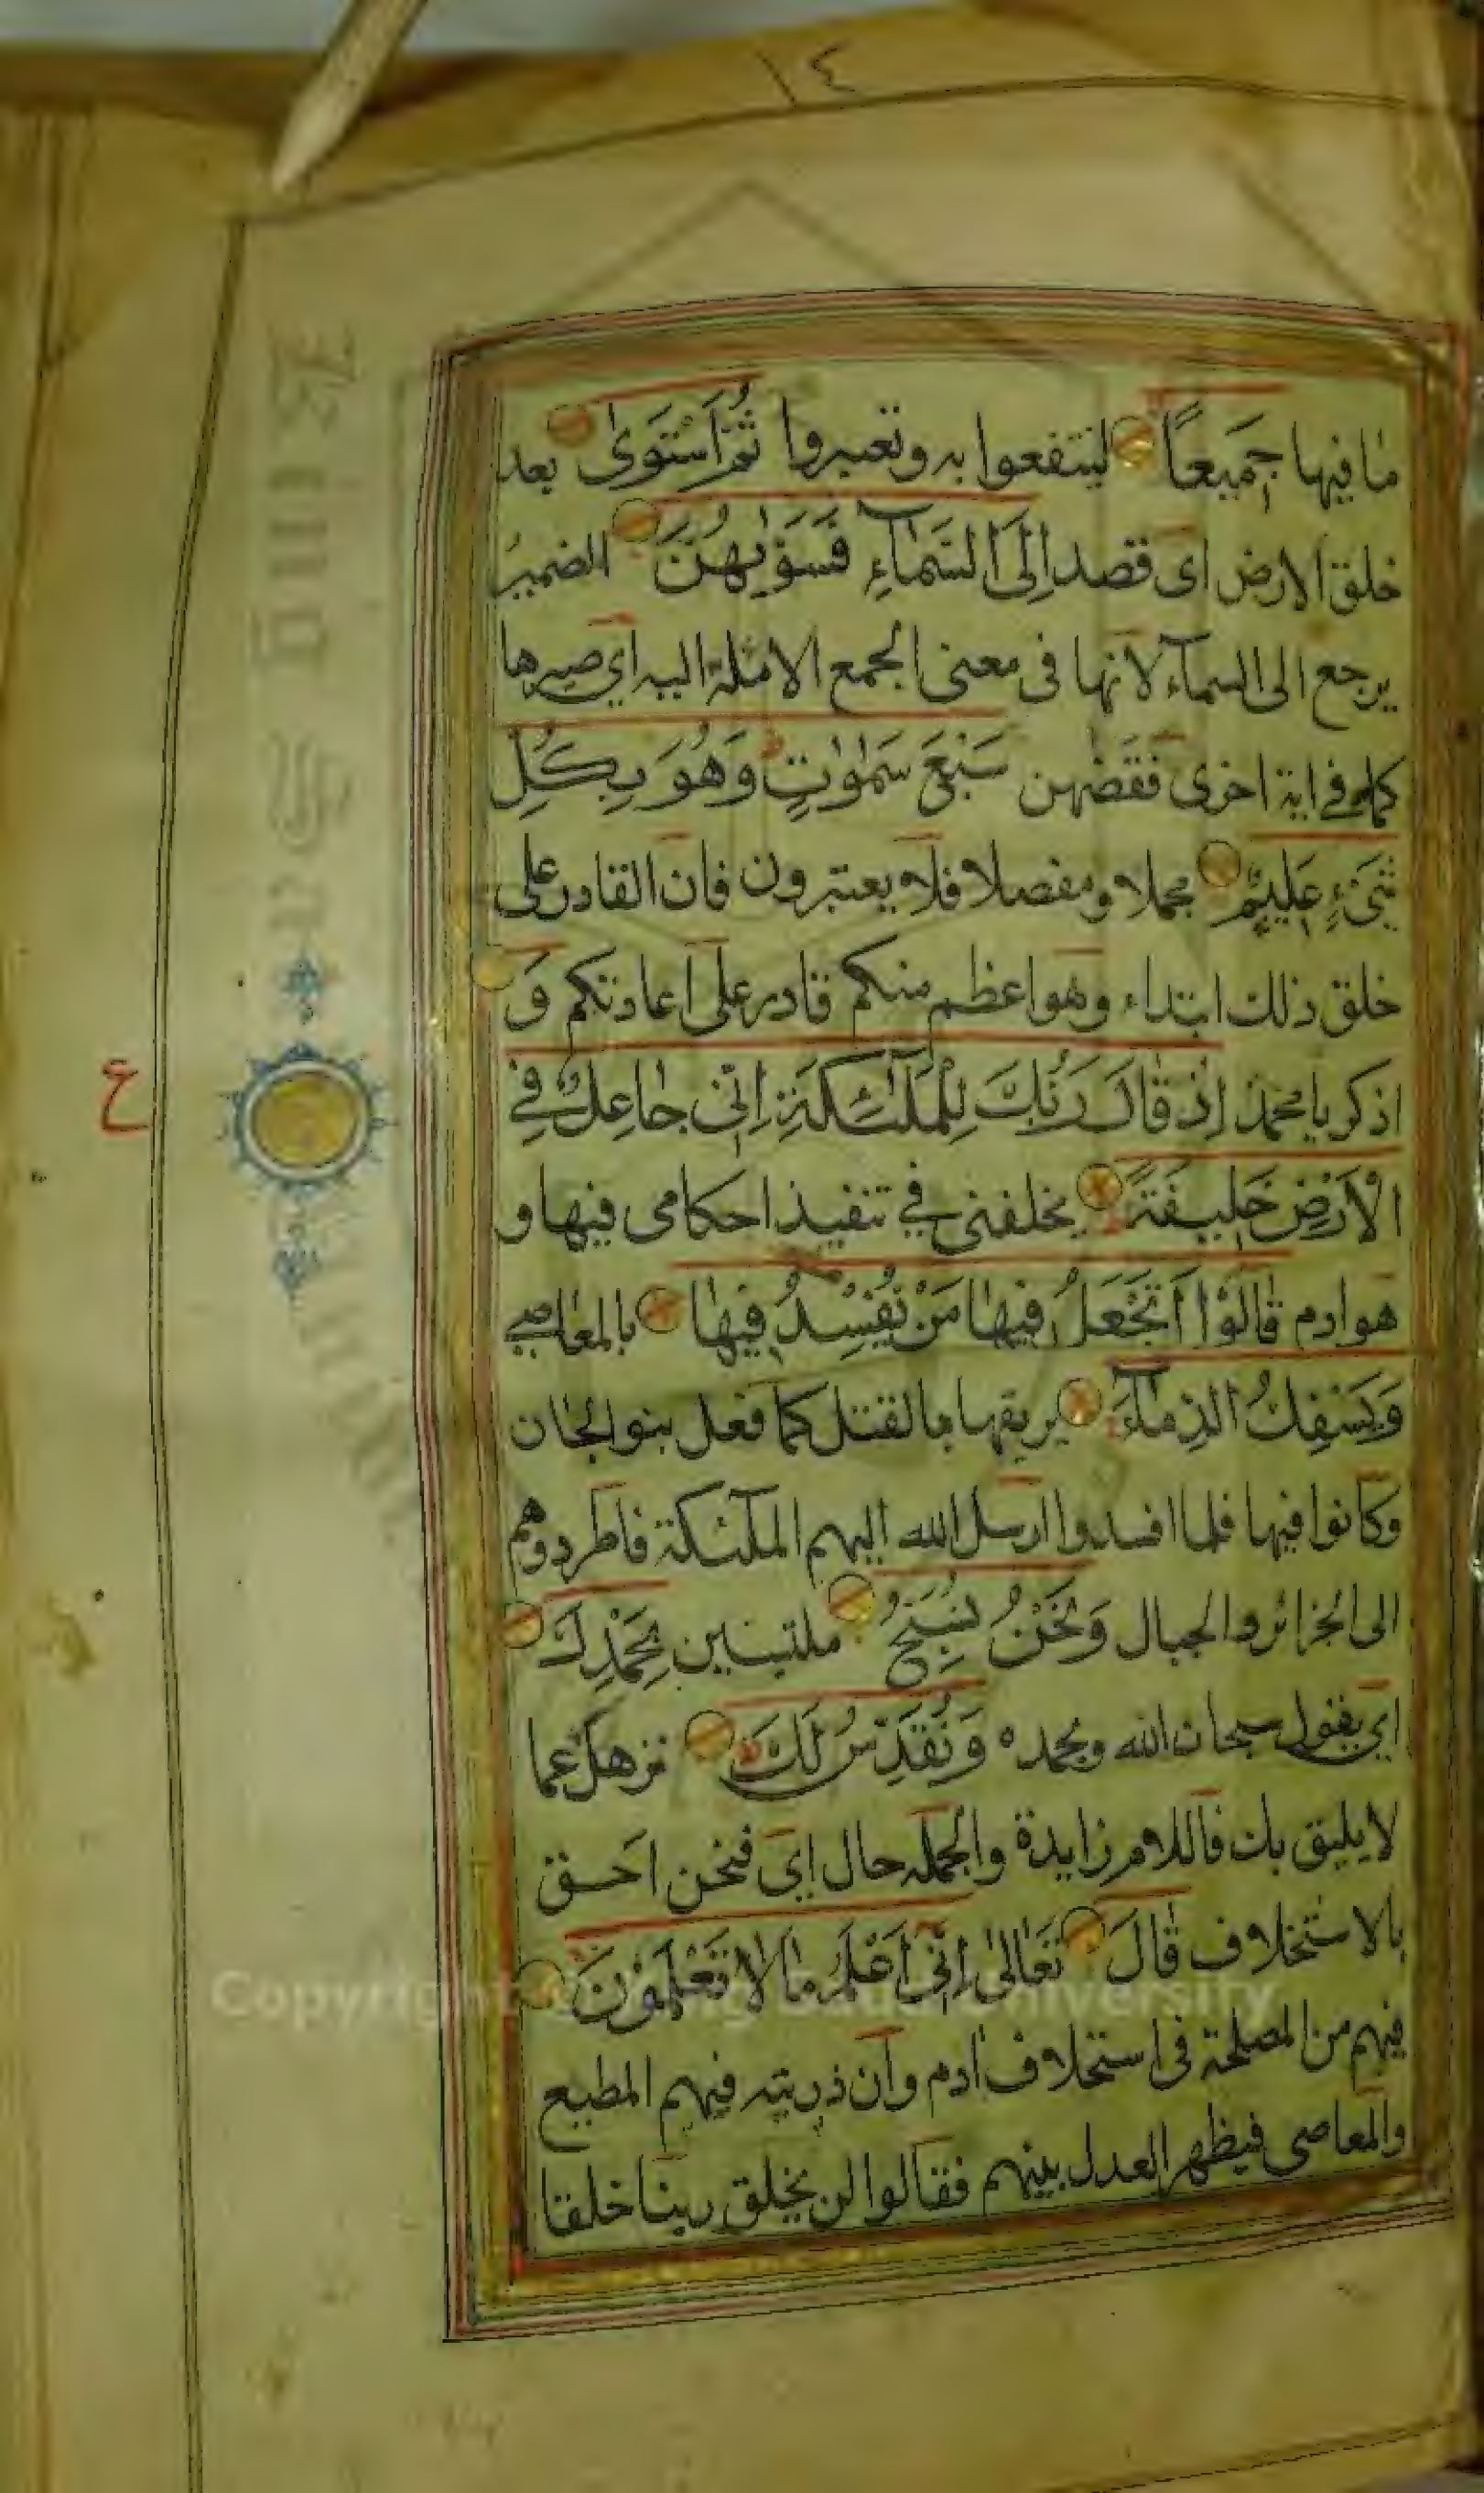 ١٤
مَا فِيهَا جَمِيعًا لتنتفعوا به وتعتبروا ثُمَّ اسْتَوٰى بعد
خلق الارض اى قصد اِلَى السَّمَآءِ فَسَوّٰىهُنَّ الضميرُ
يرجع الى السمآء لانها فى معنى الجمع الائلة اليه اي صيرها
كما في اية اخرى فقضٰهن سَبْعَ سَمٰوٰتٍ وَهُوَ بِكُلِّ
شَىْءٍ عَلِيمٌ مجملا ومفصلا افلا يعتبرون فان القادر على
خلق ذلك ابتداء وهو اعظم منكم قادر على اعادتكم وَ
اذكر يا محمد اِذْ قَالَ رَبُّكَ لِلْمَلٰٓئِكَةِ اِنّى جَاعِلٌ فِي
الْاَرْضِ خَلِيفَةً يخلفنى في تنفيذ احكامى فيها و
هو ادم قَالُوْا اَتَجْعَلُ فِيهَا مَنْ يُفْسِدُ فِيهَا بالمعاصي
وَيَسْفِكُ الدِّمَآءَ يريقها بالقتل كما فعل بنو الجان
وكانوا فيها فلما افسدوا ارسل الله اليهم الملٓئكة فاطردوهم
الى الجزائر والجبال وَنَحْنُ نُسَبِّحُ ملتبسين بِحَمْدِكَ
اي يقول سبحان الله وبحمده وَنُقَدِّسُ لَكَ ننزهك عما
لا يليق بك فاللام زايدة والجمله حال اي فنحن احق
بالاستخلاف قَالَ تَعَالٰى اِنّى اَعْلَمُ مَا لَا تَعْلَمُوْنَ
فيهم من المصلحة فى استخلاف ادم وان ذريته فيهم المطيع
والمعاصى فيظهر العدل بينهم فقالوا لن يخلق ربنا خلقا
ع
King Saud University
Copyright © King Saud University